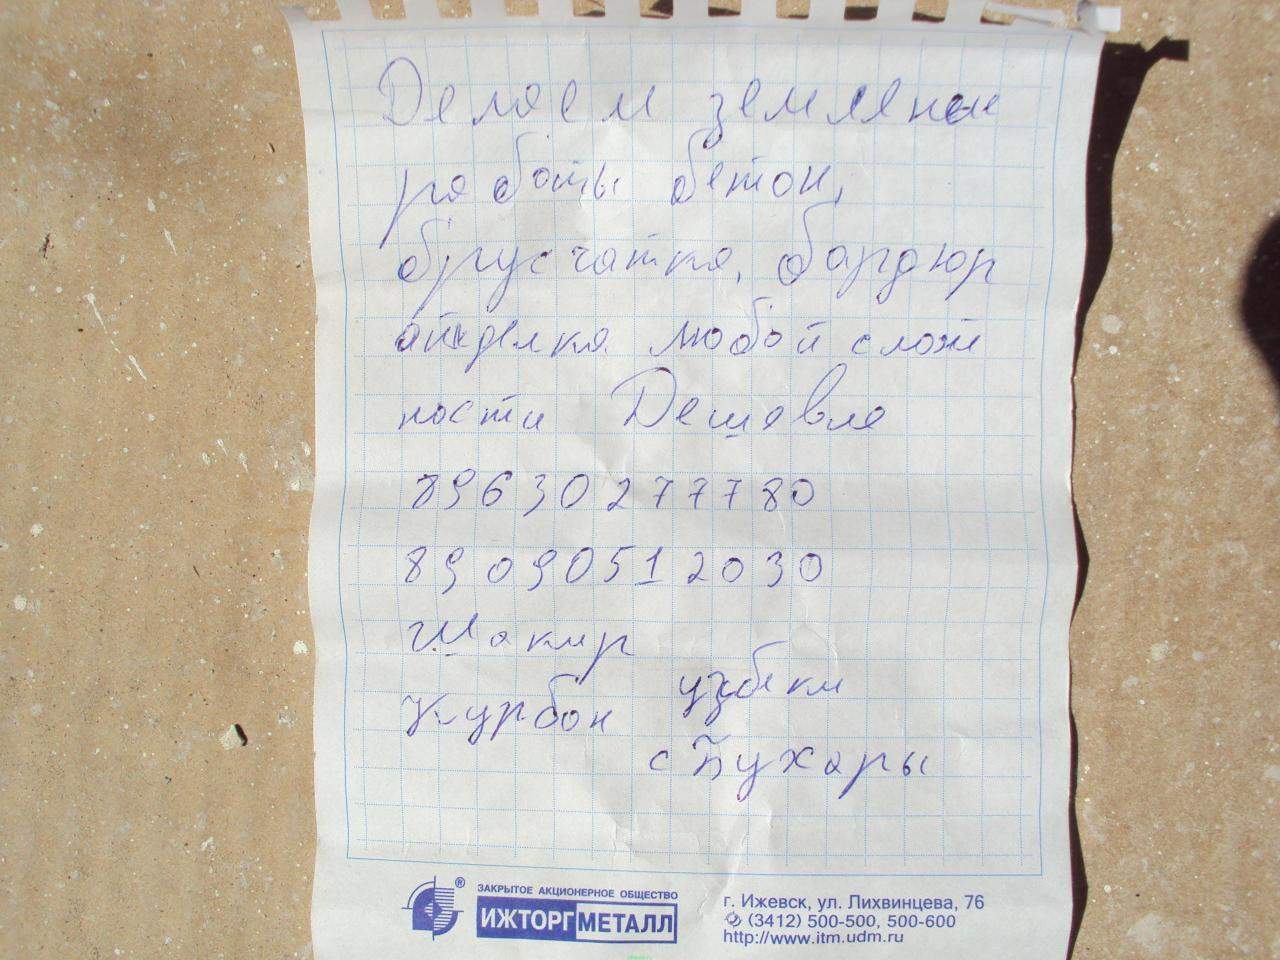 Делаем земляные
работы бетон,
брусчатка, бардюр
атделка любой слож
ности Дешевле
89630277780
89090512030
Шакир
узбеки
Курбон
с Бухары
®
ЗАКРЫТОЕ АКЦИОНЕРНОЕ ОБЩЕСТВО
ИЖТОРГМЕТАЛЛ
г. Ижевск, ул. Лихвинцева, 76
(3412) 500-500, 500-600
http://www.itm.udm.ru